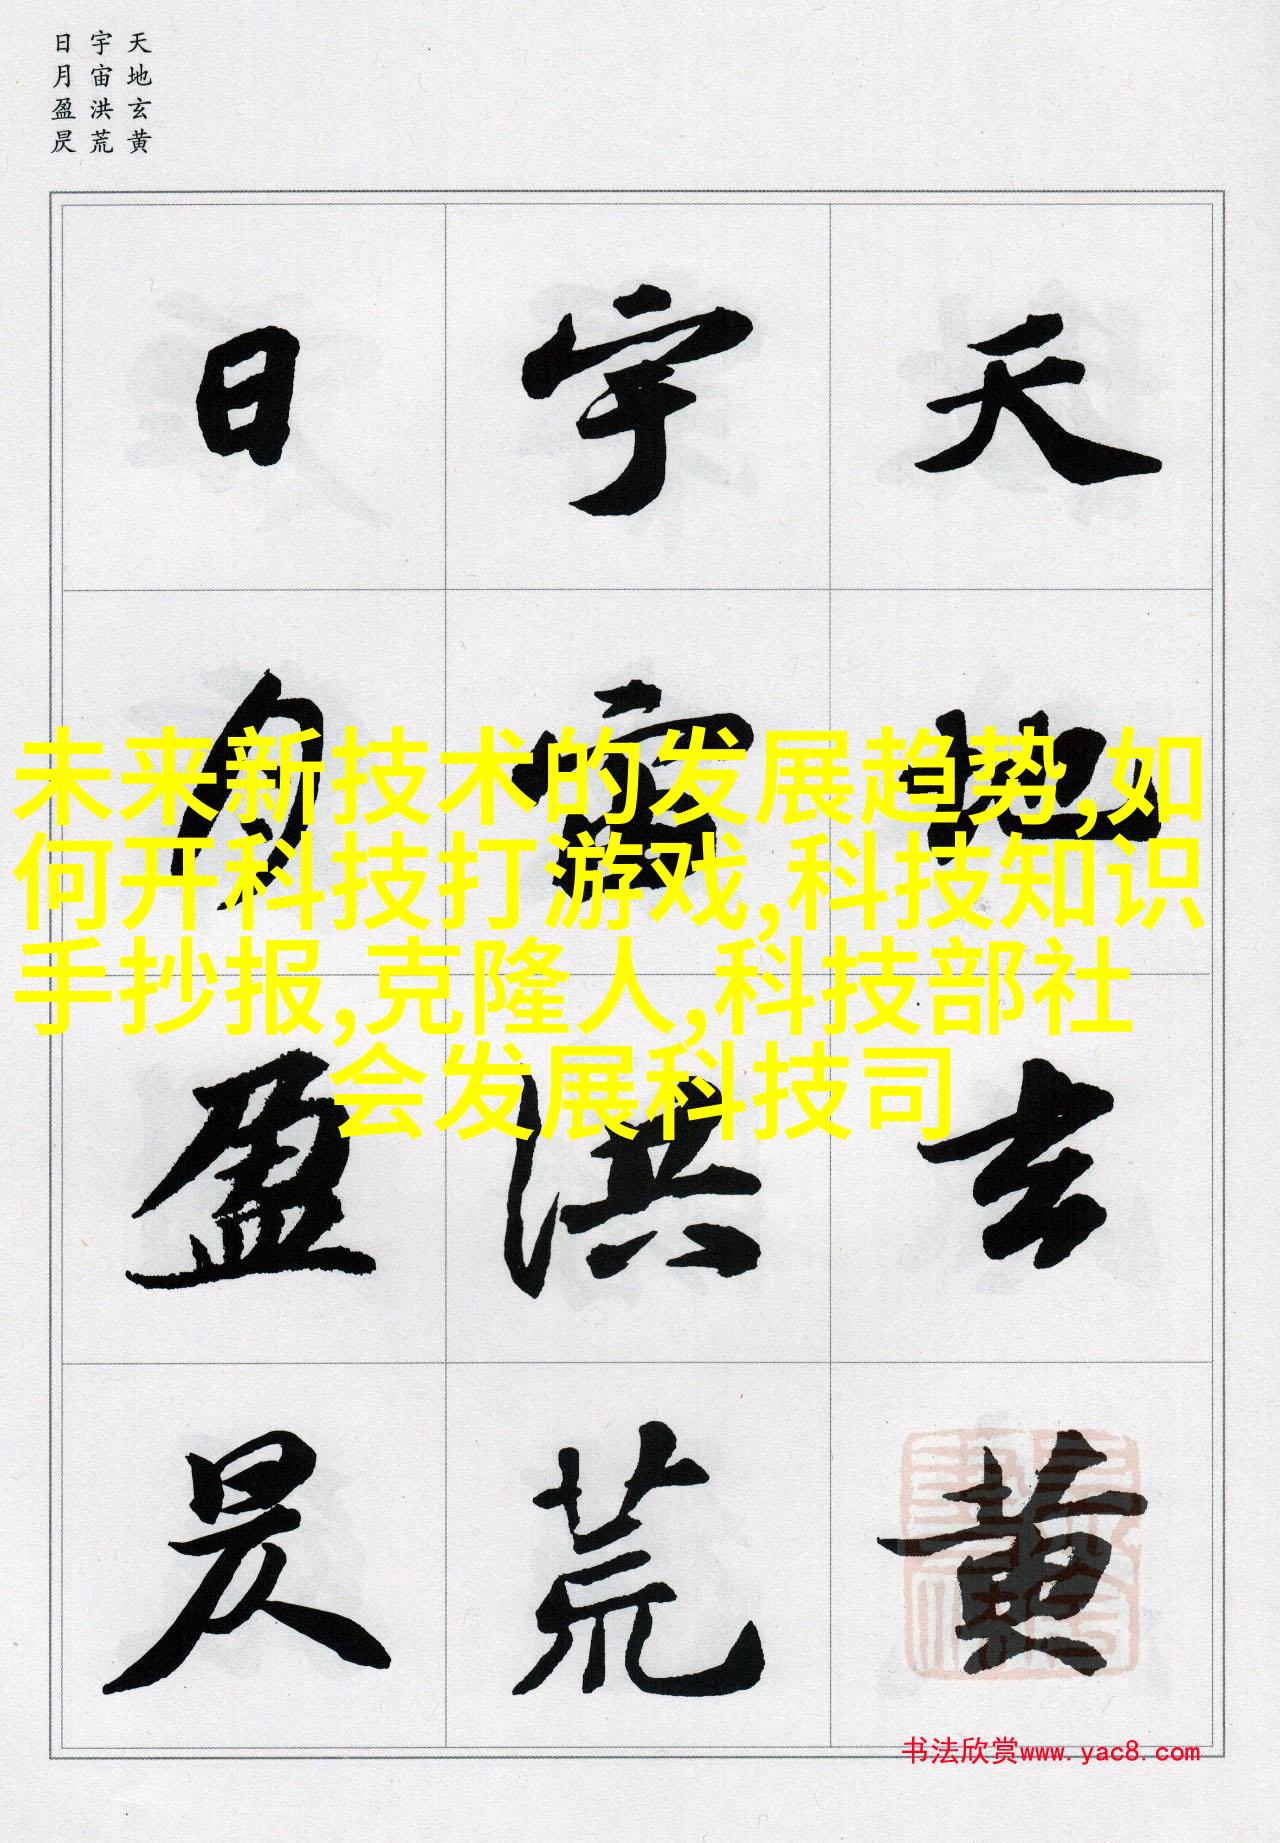 天地玄黄
宇宙洪荒
日月盈昃
天地玄黄
宇宙洪荒
日月盈昃
未来新技术的发展趋势,如
何开科技打游戏,科技知识
手抄报,克隆人,科技部社
会发展科技司
书法欣赏www.yac8.com